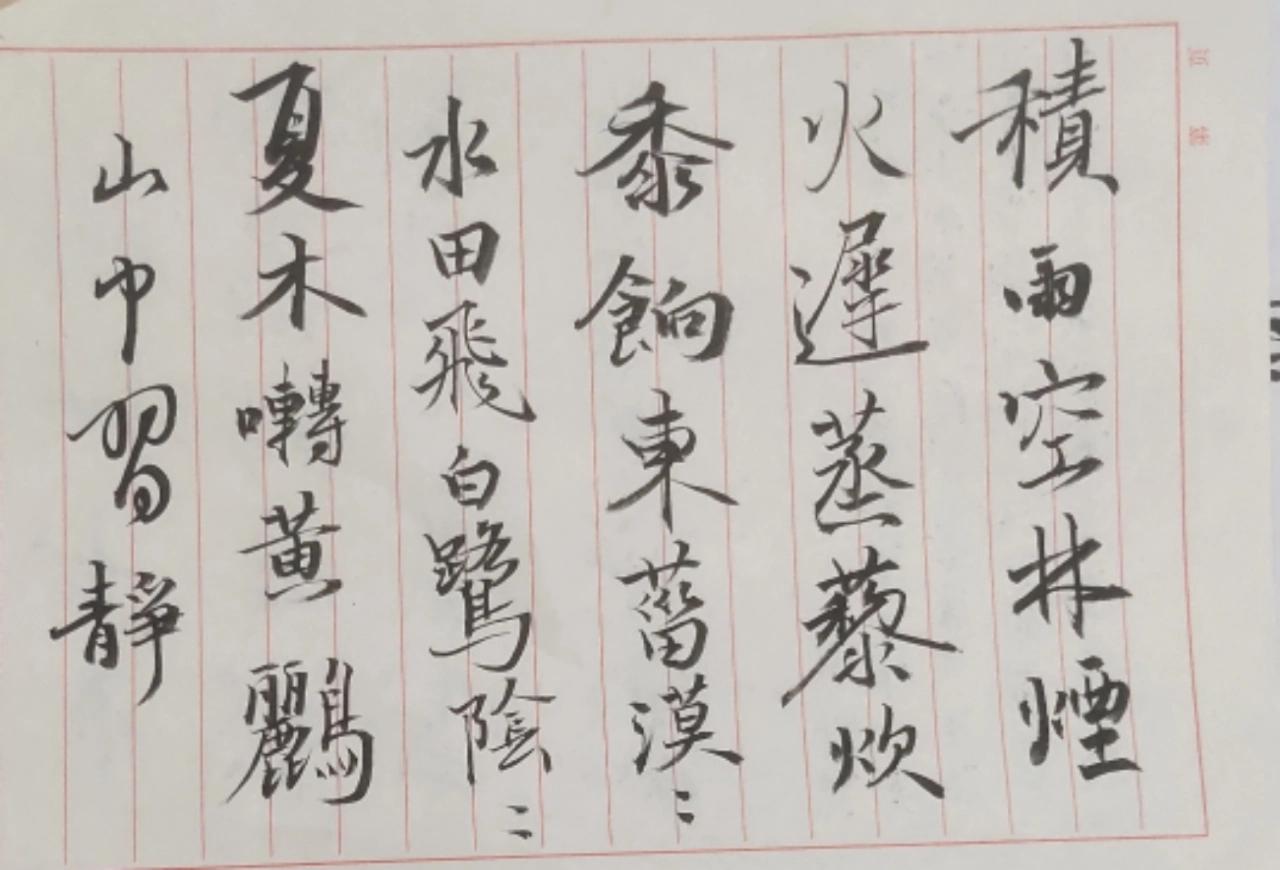 積雨空林煙
火遲蒸藜炊
黍餉東菑漠〻
水田飛白鷺陰〻
夏木囀黃鸝
山中習靜